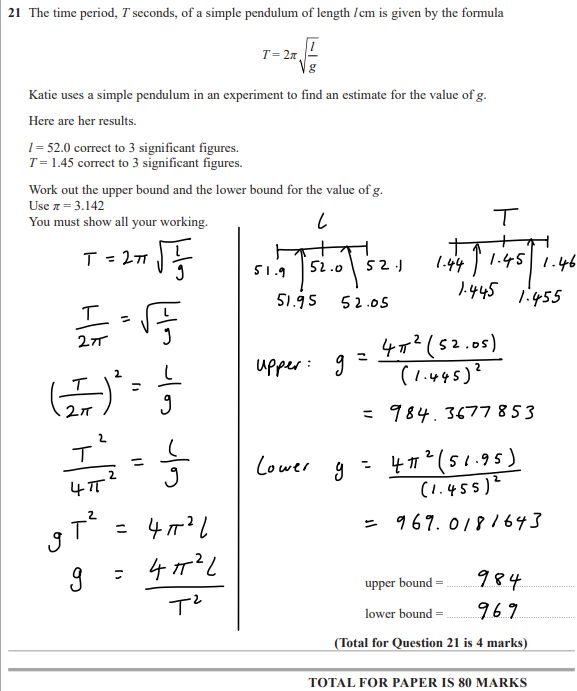 21 The time period, T seconds, of a simple pendulum of length l cm is given by the formula
T = 2π√(l/g)
Katie uses a simple pendulum in an experiment to find an estimate for the value of g.
Here are her results.
l = 52.0 correct to 3 significant figures.
T = 1.45 correct to 3 significant figures.
Work out the upper bound and the lower bound for the value of g.
Use π = 3.142
You must show all your working.
T = 2π√(l/g)
T/2π = √(L/g)
(T/2π)² = L/g
T²/4π² = l/g
gT² = 4π²l
g = 4π²l/T²
l
51.9 52.0 52.1
51.95 52.05
T
1.44 1.45 1.46
1.445 1.455
upper: g = 4π²(52.05)/(1.445)²
= 984.3677853
Lower g = 4π²(51.95)/(1.455)²
= 969.0181643
upper bound = 984
lower bound = 969
(Total for Question 21 is 4 marks)
TOTAL FOR PAPER IS 80 MARKS